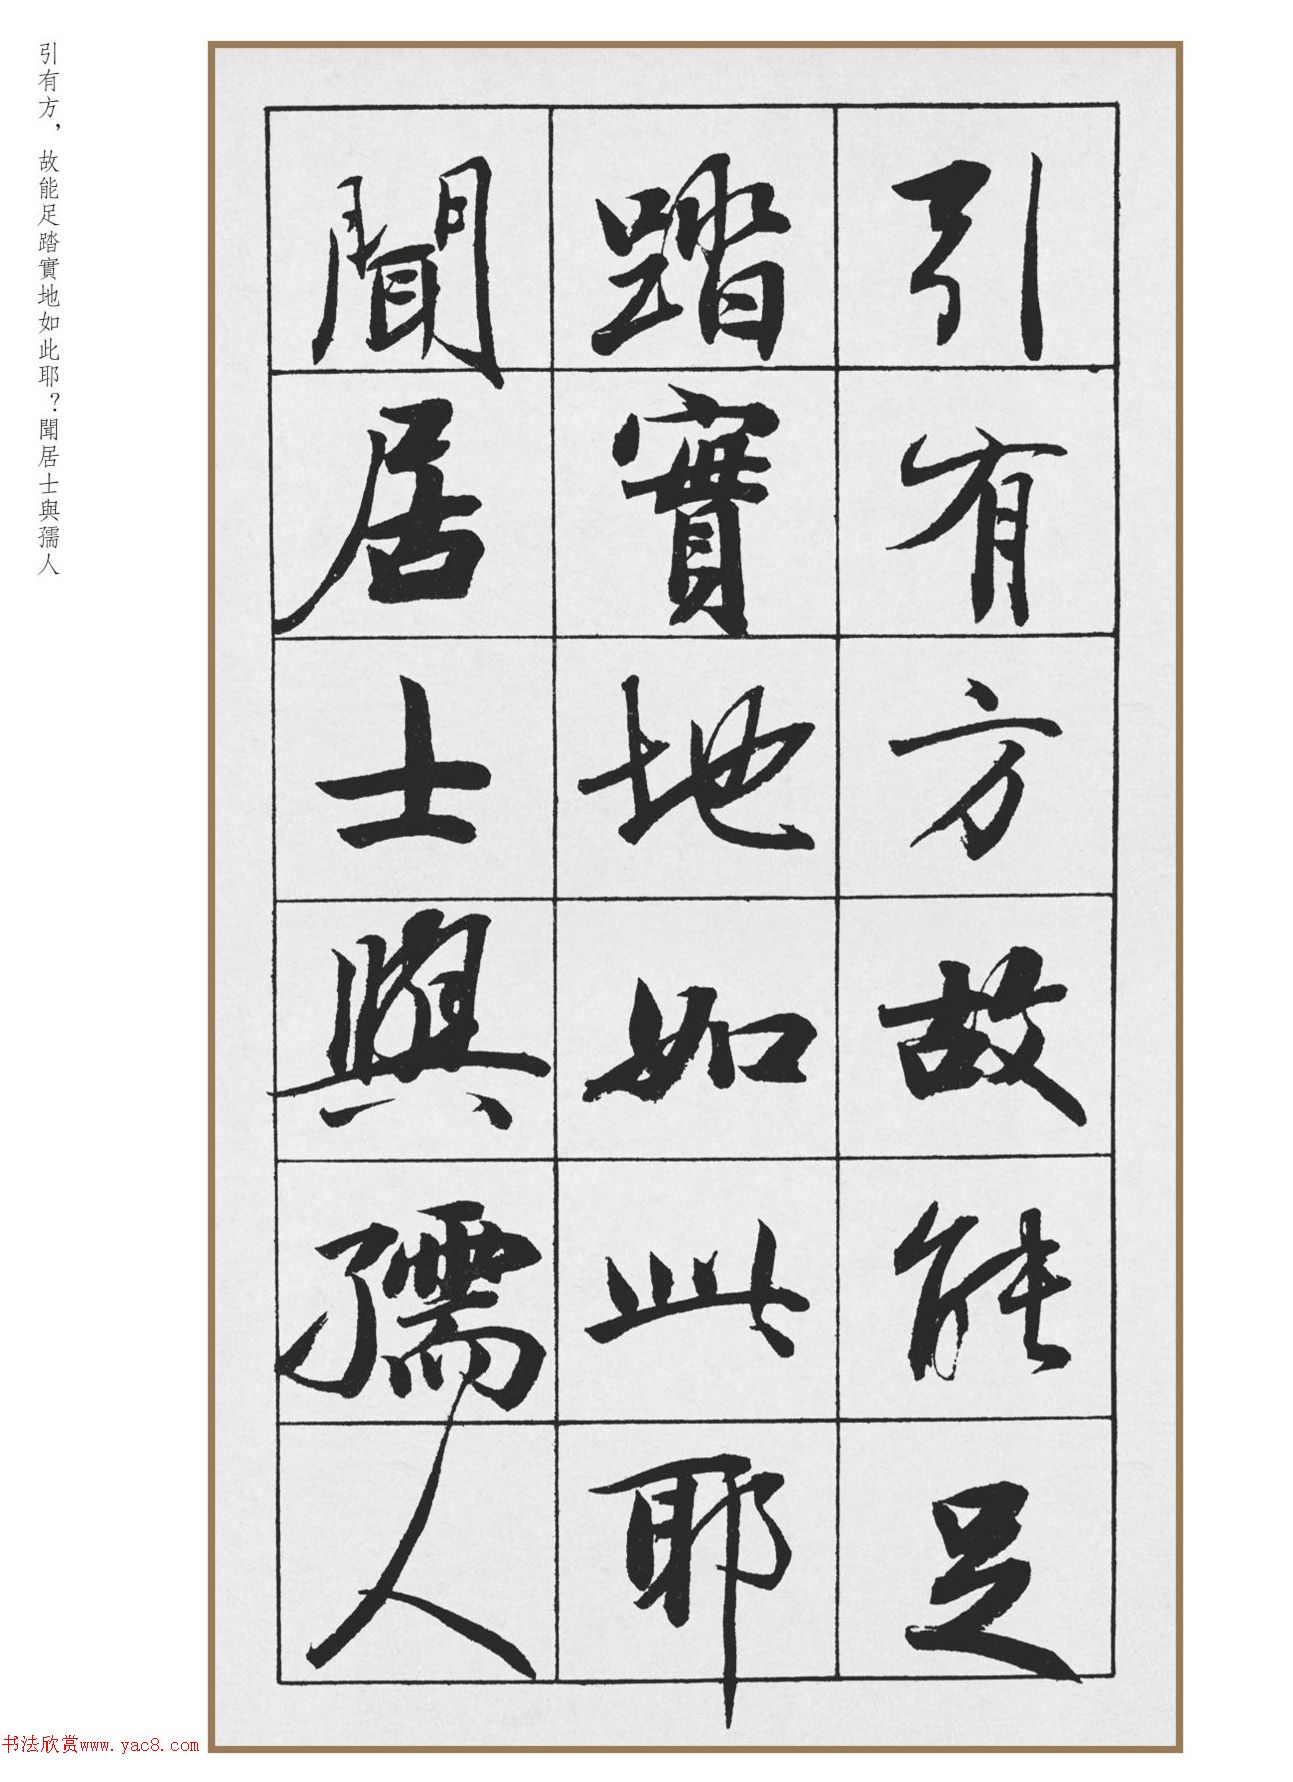 引有方故能足
踏實地如此耶
聞居士與孺人
引有方，故能足踏實地如此耶？聞居士與孺人
书法欣赏www.yac8.com